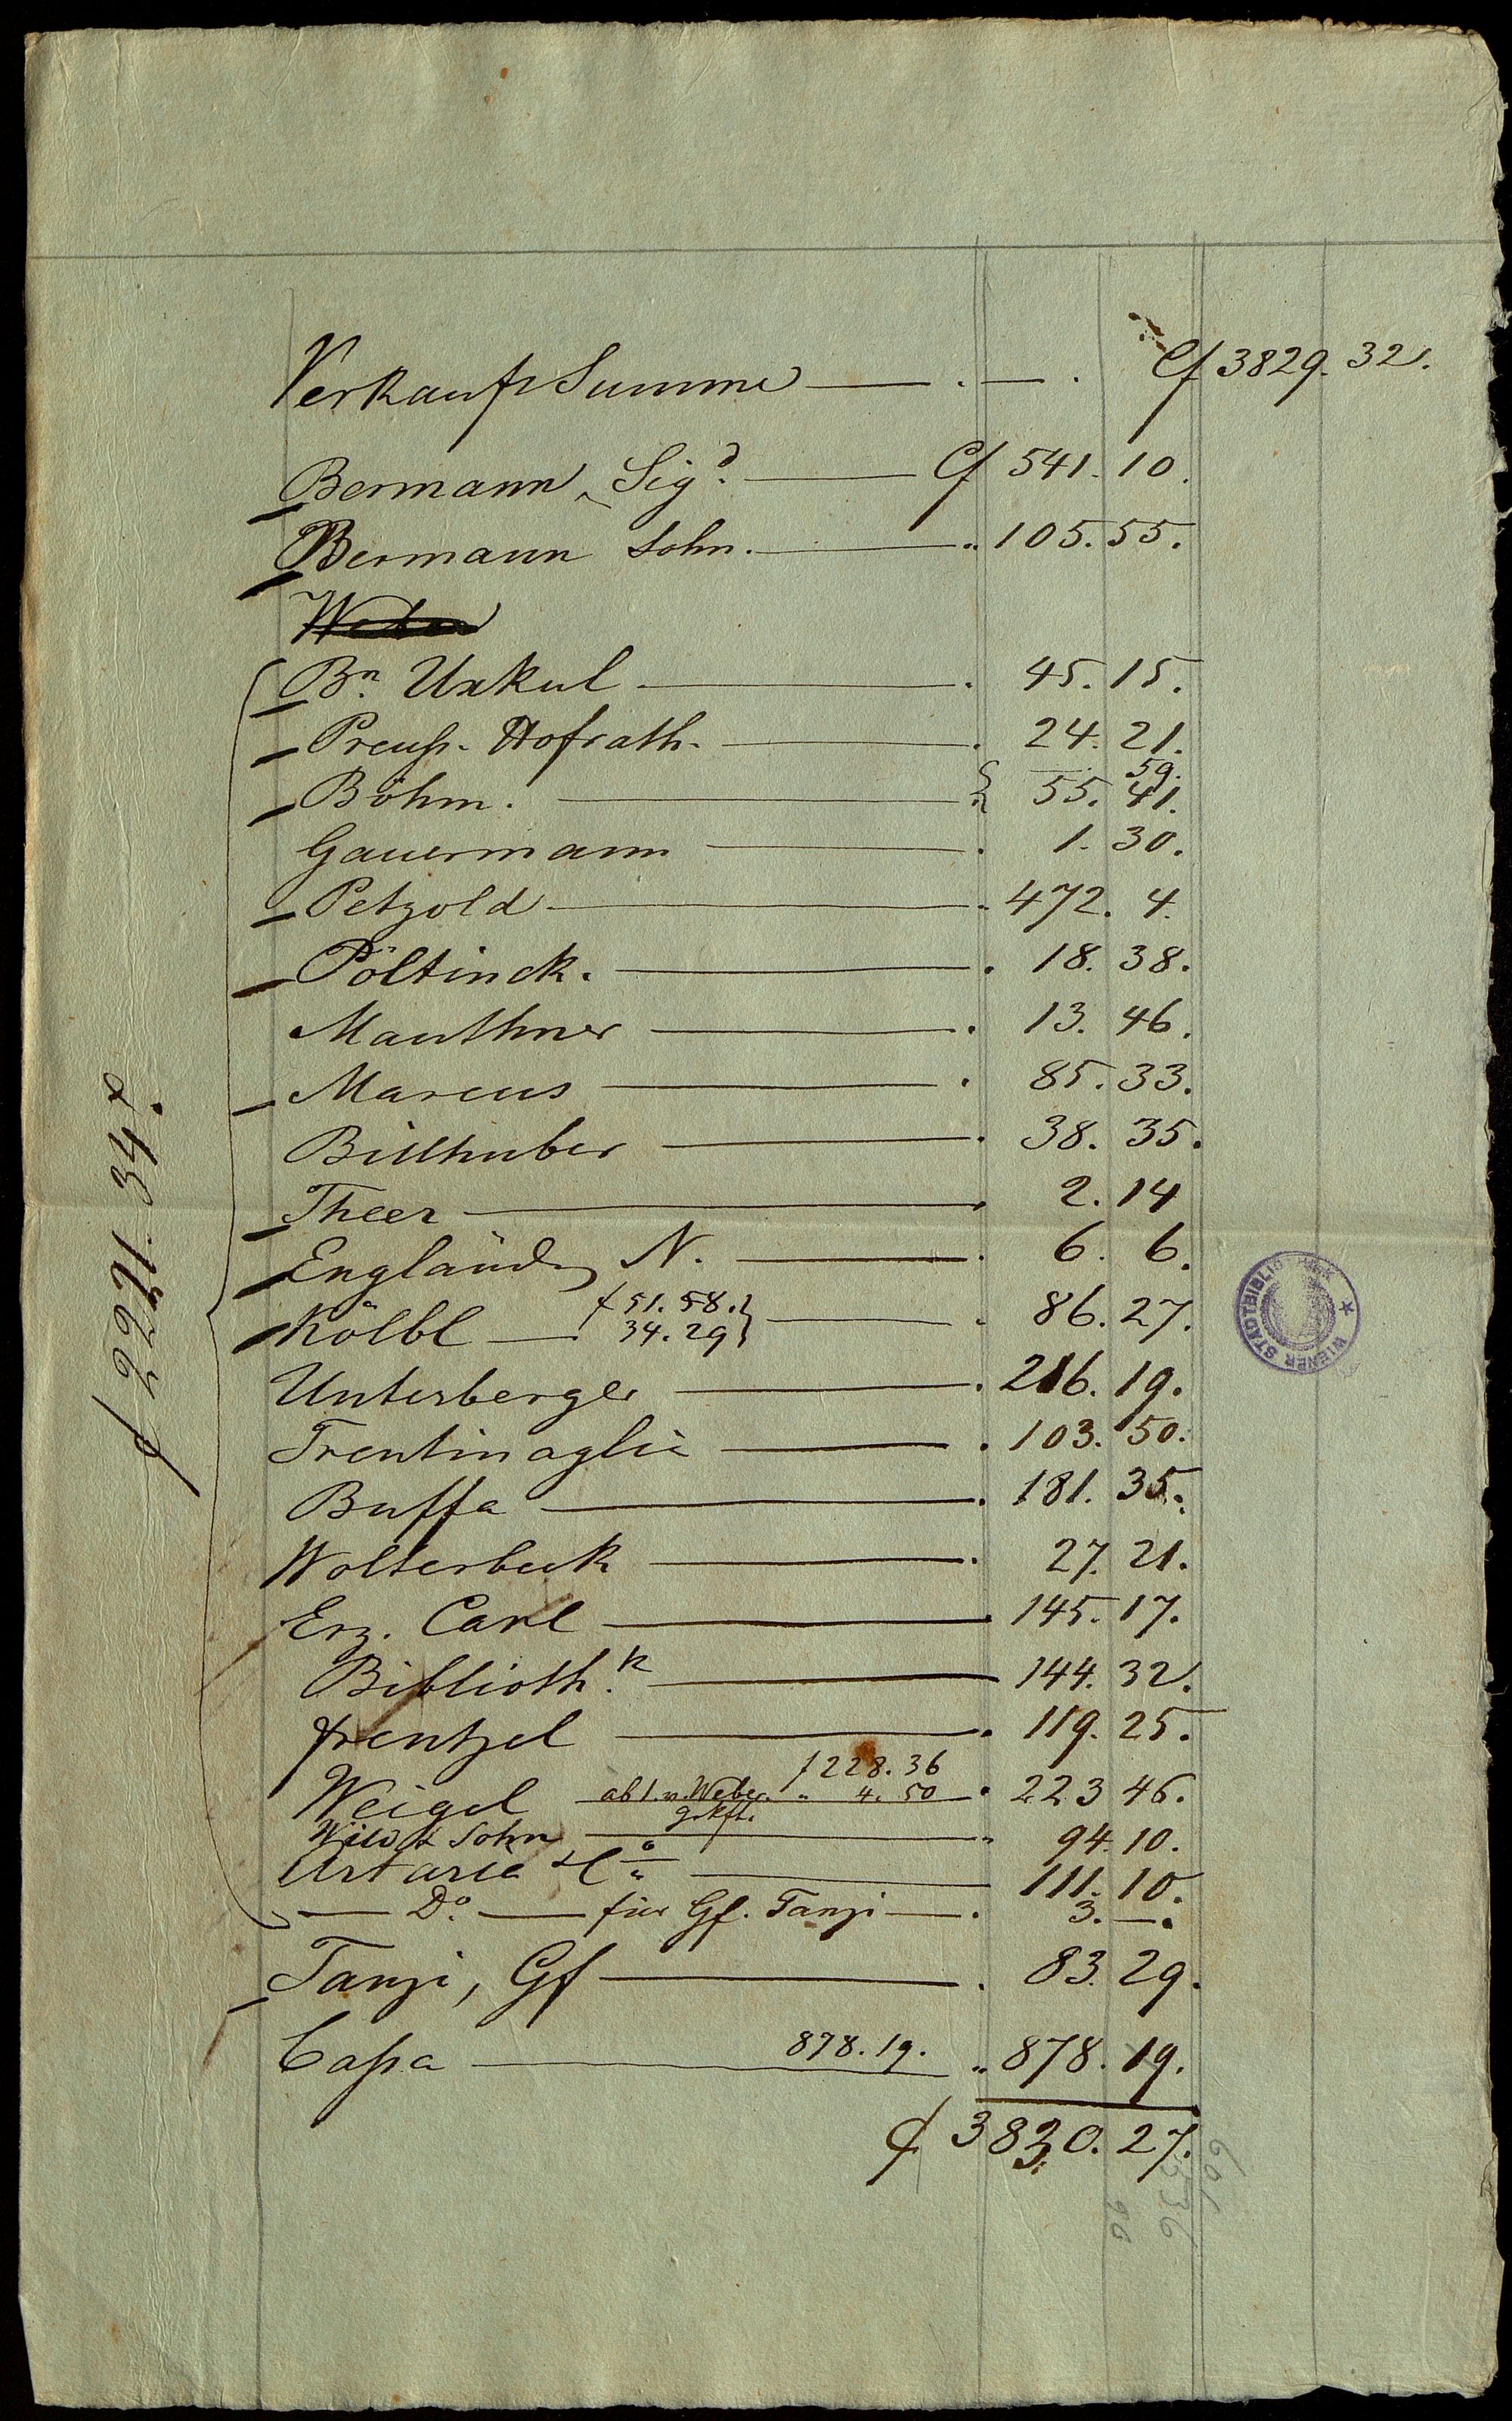 Verkaufs Summe — . — . Cf 3829. 32.
Bermann, Sigd. — Cf 541. 10.
Bermann Sohn. — " 105. 55.
Weber
Bn. Uxkul — . 45. 15.
Preuß. Hofrath. — . 24. 21.
— 59.
Böhm. — " 55. 41.
Gauermann — . 1. 30.
Petzold — . 472. 4.
Pöltinck. — . 18. 38.
Mauthner — . 13. 46.
Marcus — . 85. 33.
Billhuber — . 38. 35.
Theer — . 2. 14
Engländ N. — . 6. 6.
f 51. 58.
Kölbl — 34. 29 — . 86. 27.
Unterberger — . 216. 19.
Trentinaglia — . 103. 50.
Buffa — . 181. 35.
Wolterbeck — . 27. 21.
Erz. Carl — . 145. 17.
Biblioth.k — 144. 32.
Frentzel — . 119. 25.
f 228. 36
Weigel ab l. v. Weber " 4. 50 . 223 46.
gekft.
Wild & Sohn — " 94. 10.
Artaria & Co — 111. 10.
— Do. — für Gf. Tanzi — . 3. —.
Tanzi, Gf — . 83. 29.
Cassa — 878. 19. " 878. 19.
Cf 3830. 27.
f 2221. 34 x.
WIENER STADTBIBLIOTHEK